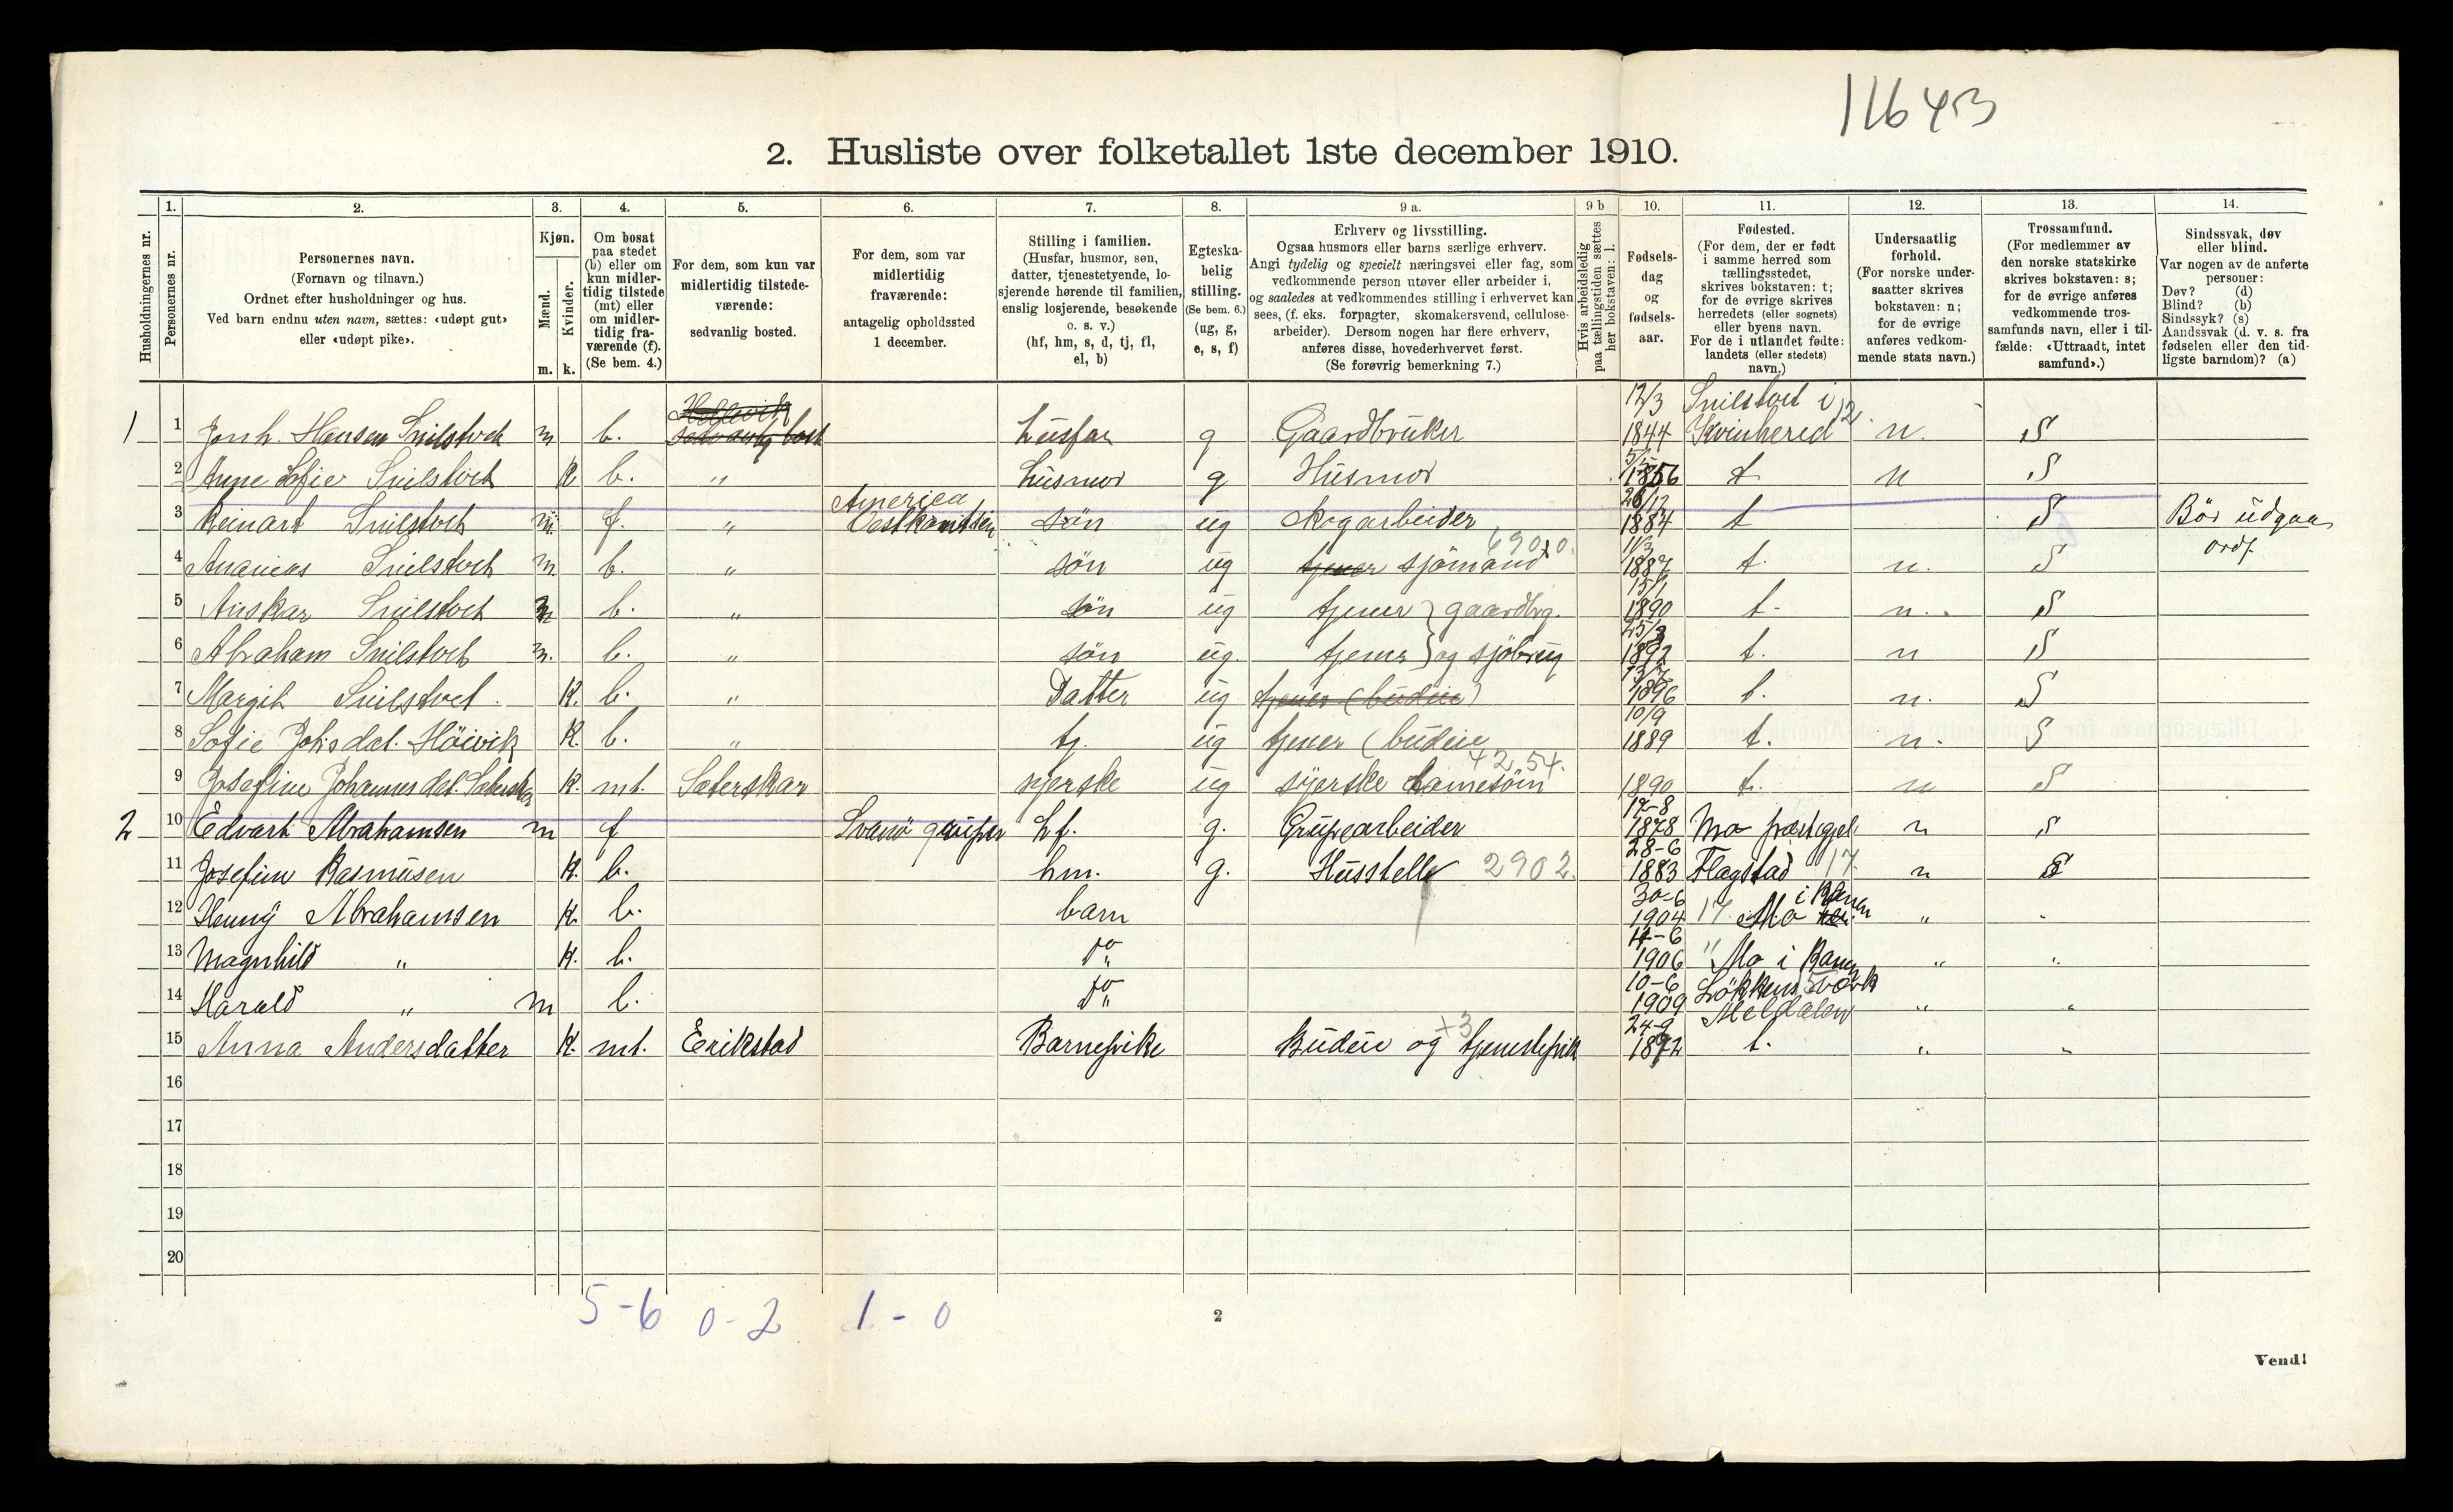 11643
2. Husliste over folketallet 1ste december 1910.
1. 2. 3. 4. 5. 6. 7. 8. 9 a. 9 b 10. 11. 12. 13. 14.
Husholdningernes nr.
Personernes nr.
Personernes navn.
(Fornavn og tilnavn.)
Ordnet efter husholdninger og hus.
Ved barn endnu uten navn, sættes: «udøpt gut»
eller «udøpt pike».
Kjøn.
Mænd.
Kvinder.
m. k.
Om bosat
paa stedet
(b) eller om
kun midler-
tidig tilstede
(mt) eller
om midler-
tidig fra-
værende (f).
(Se bem. 4.)
For dem, som kun var
midlertidig tilstede-
værende:
sedvanlig bosted.
For dem, som var
midlertidig
fraværende:
antagelig opholdssted
1 december.
Stilling i familien.
(Husfar, husmor, søn,
datter, tjenestetyende, lo-
sjerende hørende til familien,
enslig losjerende, besøkende
o. s. v.)
(hf, hm, s, d, tj, fl,
el, b)
Egteska-
belig
stilling.
(Se bem. 6.)
(ug, g,
e, s, f)
Erhverv og livsstilling.
Ogsaa husmors eller barns særlige erhverv.
Angi tydelig og specielt næringsvei eller fag, som
vedkommende person utøver eller arbeider i,
og saaledes at vedkommendes stilling i erhvervet kan
sees, (f. eks. forpagter, skomakersvend, cellulose-
arbeider). Dersom nogen har flere erhverv,
anføres disse, hovederhvervet først.
(Se forøvrig bemerkning 7.)
Hvis arbeidsledig
paa tællingstiden sættes
her bokstaven: l.
Fødsels-
dag
og
fødsels-
aar.
Fødested.
(For dem, der er født
i samme herred som
tællingsstedet,
skrives bokstaven: t;
for de øvrige skrives
herredets (eller sognets)
eller byens navn.
For de i utlandet fødte:
landets (eller stedets)
navn.)
Undersaatlig
forhold.
(For norske under-
saatter skrives
bokstaven: n;
for de øvrige
anføres vedkom-
mende stats navn.)
Trossamfund.
(For medlemmer av
den norske statskirke
skrives bokstaven: s;
for de øvrige anføres
vedkommende tros-
samfunds navn, eller i til-
fælde: «Uttraadt, intet
samfund».)
Sindssvak, døv
eller blind.
Var nogen av de anførte
personer:
Døv? (d)
Blind? (b)
Sindssyk? (s)
Aandssvak (d. v. s. fra
fødselen eller den tid-
ligste barndom)? (a)
1 1 Jonh. Hansen Snilstvet m b. husfar g Gaardbruker 12/3 1844 Snilstvet i Kvinhered 12 n. S
2 Anne Sofie Snilstvet K b. " husmor g Husmor 1856 t n S
3 Reinart Snilstvet m. f. " America søn ug skogarbeider 1884 t S Bør udgaa
4 Ananias Snilstvet m. b. " søn ug tjener sjömand 11/3 1887 t. n. S
5 Anskar Snilstvet m b. " søn ug tjener } gaardbrg. 15/1 1890 t. n. S
6 Abraham Snilstvet m. b. " søn ug. tjener } og sjöbrug 25/3 1892 t. n S
7 Margit Snilstvet K. b. " Datter ug tjener (budeie) 1896 t. n. S
8 Sofie Johsdat. Höivik K. b. " tj. ug tjener (budeie 10/9 1889 t. n. S
9 Josefine Johannesdat. Sæterskar K. mt. Sæterskar syerske ug syerske damesöm 42.54. 1890 t. n S
2 10 Edvart Abrahamsen m f Svanö gruper hf. g. Grupearbeider 1878 Mo præstgjel n S
11 Josefine Rasmusen K. b. hm. g. Husstelle 2902. 28-6 1883 Flagstad 17 n S
12 Henny Abrahamsen K. b. barn 30-6 1904 17 Mo i Ranen " "
13 Magnhild " K. b. do 1906 " Mo i Ranen " "
14 Harald " m b. do 10-6 1909 Lökkens Værk Meldalen " "
15 Anna Andersdatter K. mt. Erikstad Barnepike Budeie og tjenestepik 24-9 1892 t. " "
16
17
18
19
20
5-6 0-2 1-0
2
Vend!